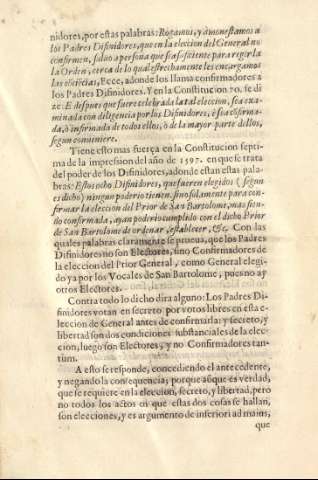 nidores, por estas palabras: Rogamus, y amonestamos a
los Padres Difinidores, que en la eleccion del General no
confirmen, saluo a persona que sea suficiente para regir la
la Orden, cerca de lo qual estrechamente les encargamos
las cõciẽcias, Ecce, adonde los llama confirmadores a
los Padres Difinidores. Y en la Constitucion 70. se di
ze: E despues que fuere celebrada la tal eleccion, sea exa
minada con diligencia por los Difinidores, è sea cõfirma-
da, ò infirmada de todos ellos, ò de la mayor parte dellos,
segun conuiniere.
Tiene esto mas fuerça en la Constitucion septi
ma de la impression del año de 1597. en que se trata
del poder de los Difinidores, adonde estan estas pala-
bras: Estos ocho Difinidores, que fueren elegidos (segun
es dicho) ningun poderio tienen, sino solamente para con-
firmar la eleccion del Prior de San Bartolome, mas sien-
do confirmada, ayan poderio cumplido con el dicho Prior
de San Bartolome de ordenar, establecer, &c. Con las
quales palabras claramente se prueua, que los Padres
Difinidores no son Electores, sino Confirmadores de
la eleccion del Prior General, como General elegi-
do ya por los Vocales de San Bartolome, pues no ay
otros Electores.
Contra todo lo dicho dira alguno: Los Padres Di-
finidores votan en secreto por votos libres en esta e-
leccion de General antes de confirmarla: y secreto, y
libertad son dos condiciones substanciales de la elec-
cion, luego son Electores, y no Confirmadores tan-
tum.
A esto se responde, concediendo el antecedente,
y negando la consequencia; porque aũque es verdad,
que se requiere en la eleccion, secreto, y libertad, pero
no todos los actos en que estas dos cosas se hallan,
son elecciones, y es argumento de inferiori ad maius,
que